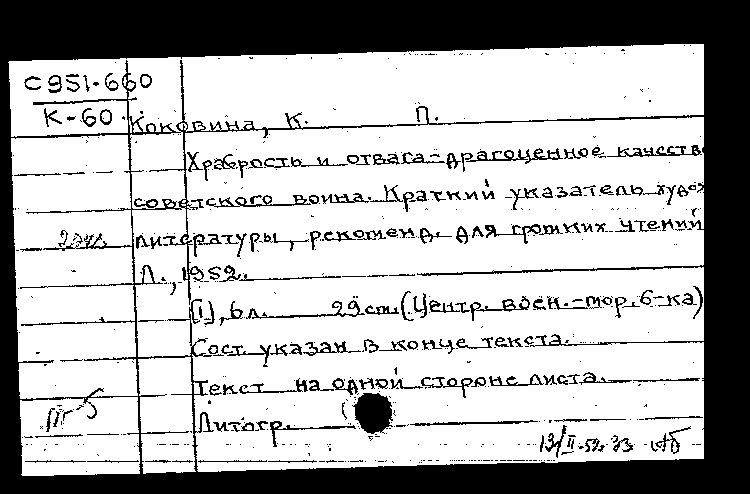 С951-660
К-60
Коковина, К. П.
Храбрость и отвага-драгоценное качеств
советского воина. Краткий указатель худож
2 экз.
литературы, рекоменд. для громких чтений
Л., 1952.
[1], 6 л. 29 см. (Центр. воен.-мор. б-ка)
Сост. указан в конце текста.
Текст на одной стороне листа.
Литогр.
13/II-52